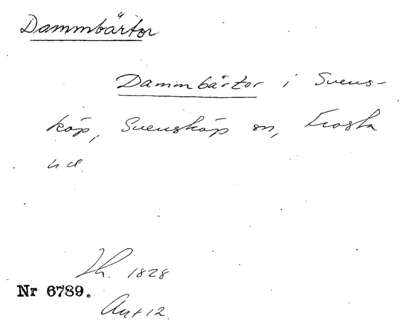 Dammbärtor
Dammbärtor i Svens-
köp, Svensköp sn, Frosta
hd.
Lh. 1828
Nr 6789.
Akt 12.